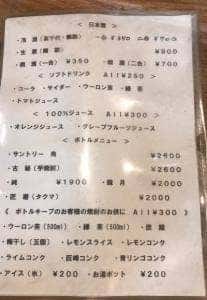 ＜ 日本酒 ＞
・冷 酒
・生 酒 ¥900
・燗 酒（一合） ¥350 ・燗 酒（二合） ¥700
＜ ソフトドリンク All¥250 ＞
・コーラ ・サイダー ・ウーロン茶 ・緑 茶
・トマトジュース
＜ 100%ジュース All¥300 ＞
・オレンジジュース ・グレープフルーツジュース
＜ ボトルメニュー ＞
・サントリー 角 ¥2600
・古 秘 ¥2600
・純 ¥1900 ・鏡 月 ¥2000
・匠 磨（タクマ） ¥2000
＜ ボトルキープのお客様の焼酎のお供に All¥300 ＞
・ウーロン茶（500ml） ・緑 茶（500ml） ・炭 酸
・梅干し（五個） ・レモンスライス ・レモンコンク
・ライムコンク ・巨峰コンク ・青リンゴコンク
・アイス（氷） ¥200 ・お湯ポット ¥200